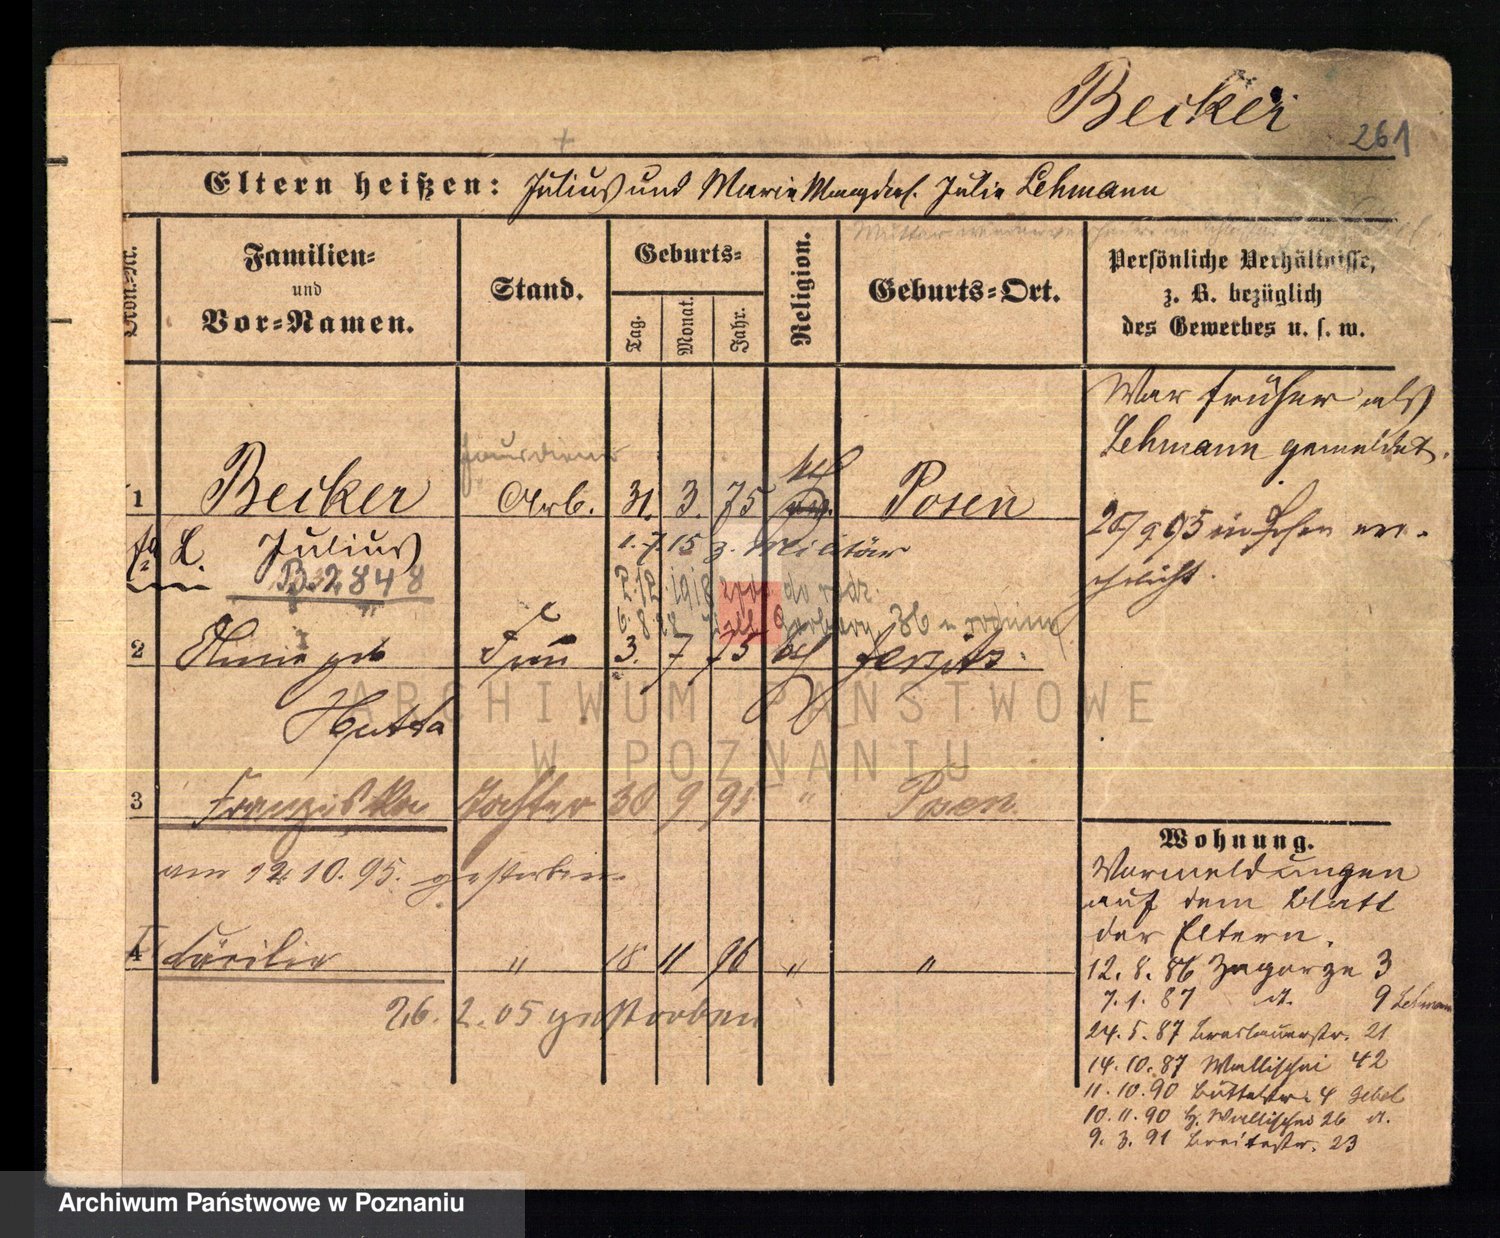 Becker
261
Eltern heißen: Julius und Marie Julie Lehmann
Ordn.-Nr.
Familien-
und
Vor-Namen.
Stand.
Geburts-
Tag.
Monat.
Jahr.
Religion.
Geburts-Ort.
Persönliche Verhältnisse,
z. B. bezüglich
des Gewerbes u. s. w.
War früher als
Lehmann gemeldet.
1 Becker Arb. 31. 3. 75 kth Posen
L. Julius 1. 7. 15 z. Militär
B. 2848
2 geb Frau 3. 7 75 kth Jersitz
Hutta
3 Franziska Tochter 30 9 95 " Posen
am 12.10.95. gestorben
4 Cäcilie " 18 11 96 " "
26. 2. 05 gestorben
Wohnung.
Vormeldungen
auf dem Blatt
der Eltern.
12. 8. 86 Zagorze 3
7. 1. 87 dt. 9 Lehmann
24. 5. 87 Breslauerstr. 21
14. 10. 87 Wallischei 42
11. 10. 90 Büttelstr. 4
10. 11. 90 Wallischei 26 dt.
9. 3. 91 Breitestr. 23
ARCHIWUM PAŃSTWOWE
W POZNANIU
Archiwum Państwowe w Poznaniu